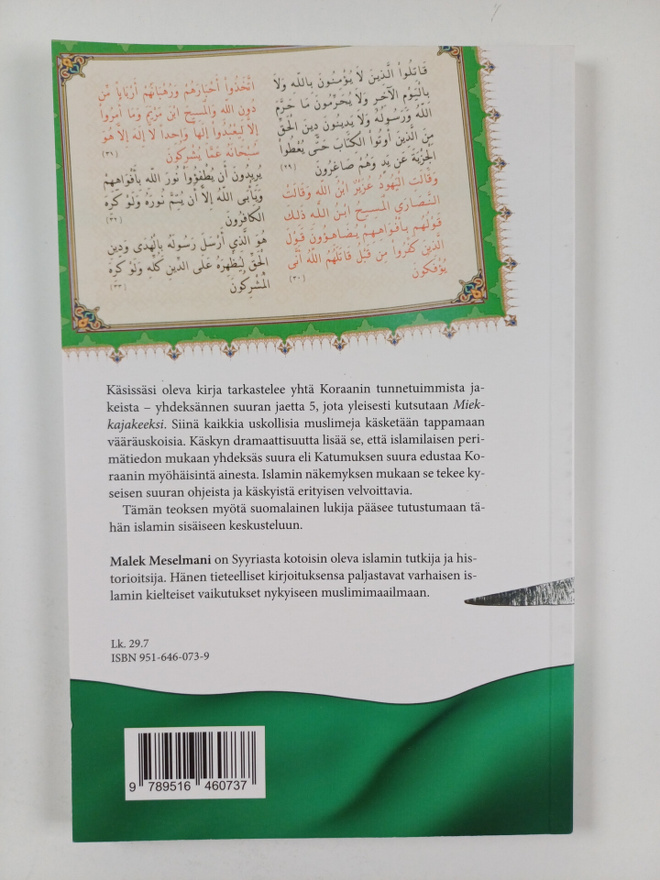 قَاتِلُواْ الَّذِينَ لاَ يُؤْمِنُونَ بِاللّهِ وَلاَ
بِالْيَوْمِ الآخِرِ وَلاَ يُحَرِّمُونَ مَا حَرَّمَ
اللّهُ وَرَسُولُهُ وَلاَ يَدِينُونَ دِينَ الْحَقِّ
مِنَ الَّذِينَ أُوتُواْ الْكِتَابَ حَتَّى يُعْطُواْ
الْجِزْيَةَ عَن يَدٍ وَهُمْ صَاغِرُونَ (٢٩)
وَقَالَتِ الْيَهُودُ عُزَيْرٌ ابْنُ اللّهِ وَقَالَتْ
النَّصَارَى الْمَسِيحُ ابْنُ اللّهِ ذَلِكَ
قَوْلُهُم بِأَفْوَاهِهِمْ يُضَاهِؤُونَ قَوْلَ
الَّذِينَ كَفَرُواْ مِن قَبْلُ قَاتَلَهُمُ اللّهُ أَنَّى
يُؤْفَكُونَ (٣٠)
اتَّخَذُواْ أَحْبَارَهُمْ وَرُهْبَانَهُمْ أَرْبَاباً مِّن
دُونِ اللّهِ وَالْمَسِيحَ ابْنَ مَرْيَمَ وَمَا أُمِرُواْ
إِلاَّ لِيَعْبُدُواْ إِلَهاً وَاحِداً لاَّ إِلَهَ إِلاَّ هُوَ
سُبْحَانَهُ عَمَّا يُشْرِكُونَ (٣١)
يُرِيدُونَ أَن يُطْفِؤُواْ نُورَ اللّهِ بِأَفْوَاهِهِمْ
وَيَأْبَى اللّهُ إِلاَّ أَن يُتِمَّ نُورَهُ وَلَوْ كَرِهَ
الْكَافِرُونَ (٣٢)
هُوَ الَّذِي أَرْسَلَ رَسُولَهُ بِالْهُدَى وَدِينِ
الْحَقِّ لِيُظْهِرَهُ عَلَى الدِّينِ كُلِّهِ وَلَوْ كَرِهَ
الْمُشْرِكُونَ (٣٣)
Käsissäsi oleva kirja tarkastelee yhtä Koraanin tunnetuimmista ja-
keista – yhdeksännen suuran jaetta 5, jota yleisesti kutsutaan Miek-
kajakeeksi. Siinä kaikkia uskollisia muslimeja käsketään tappamaan
vääräuskoisia. Käskyn dramaattisuutta lisää se, että islamilaisen peri-
mätiedon mukaan yhdeksäs suura eli Katumuksen suura edustaa Ko-
raanin myöhäisintä ainesta. Islamin näkemyksen mukaan se tekee ky-
seisen suuran ohjeista ja käskyistä erityisen velvoittavia.
Tämän teoksen myötä suomalainen lukija pääsee tutustumaan tä-
hän islamin sisäiseen keskusteluun.
Malek Meselmani on Syyriasta kotoisin oleva islamin tutkija ja his-
torioitsija. Hänen tieteelliset kirjoituksensa paljastavat varhaisen is-
lamin kielteiset vaikutukset nykyiseen muslimimaailmaan.
Lk. 29.7
ISBN 951-646-073-9
9 789516 460737